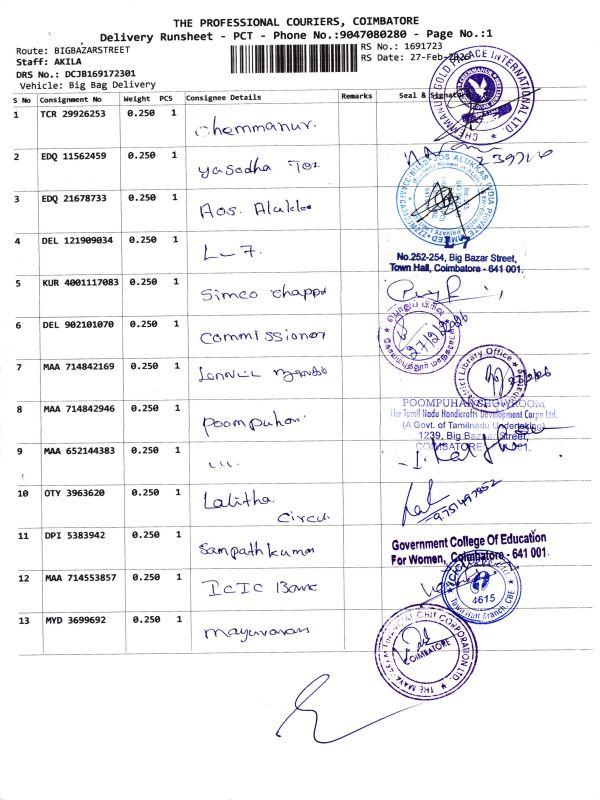 THE PROFESSIONAL COURIERS, COIMBATORE
Delivery Runsheet - PCT - Phone No.:9047080280 - Page No.:1
Route: BIGBAZARSTREET
RS No.: 1691723
Staff: AKILA
RS Date: 27-Feb-2026
DRS No.: DCJB169172301
Vehicle: Big Bag Delivery
S No Consignment No Weight PCS Consignee Details Remarks Seal & Signature
1 TCR 29926253 0.250 1 Chemmanur.
2 EDQ 11562459 0.250 1 Yasodha
3 EDQ 21678733 0.250 1 Aos. Alukka
4 DEL 121909034 0.250 1 L-7.
L-7
No.252-254, Big Bazar Street,
Town Hall, Coimbatore - 641 001.
5 KUR 4001117083 0.250 1 Simco chappa
6 DEL 902101070 0.250 1 Commissioner
27/2/2026
7 MAA 714842169 0.250 1
District Library Office
8 MAA 714842946 0.250 1 Poompuhar
POOMPUHAR SHOWROOM
The Tamil Nadu Handicrafts Development Corpn Ltd.
(A Govt. of Tamilnadu Undertaking)
1239, Big Bazar Street,
COIMBATORE
9 MAA 652144383 0.250 1 ,,,
10 OTY 3963620 0.250 1 Lalitha
Circu.
9751497852
11 DPI 5383942 0.250 1 Sampathkumar
Government College Of Education
For Women, Coimbatore - 641 001.
12 MAA 714553857 0.250 1 ICIC Bank
4615
Town Hall Branch, CBE
13 MYD 3699692 0.250 1 Mayuvaram
COIMBATORE